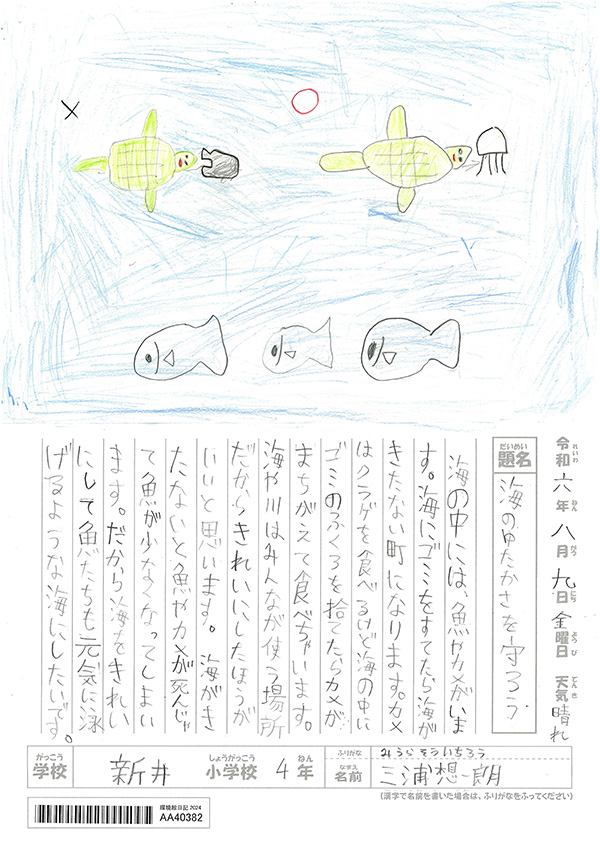 令和六年八月九日金曜日 天気晴れ
れいわ ねん がつ にち ようび てんき
だいめい
題名
海のゆたかさを守ろう
海の中には、魚やカメがいま
す。海にゴミをすてたら海が
きたない町になります。カメ
はクラゲを食べるけど海の中に
ゴミのふくろを捨てたらカメが
まちがえて食べちゃいます。
海や川はみんなが使う場所
だからきれいにしたほうが
いいと思います。海がき
たないと魚やカメが死んじゃ
て魚が少なくなってしまい
ます。だから海をきれい
にして魚たちも元気に泳
げるような海にしたいです。
がっこう
学校
新井
しょうがっこう
小学校
4
ねん
年
ふりがな
みうら そういちろう
なまえ
名前
三浦想一朗
(漢字で名前を書いた場合は、ふりがなをふってください)
環境絵日記 2024
AA40382